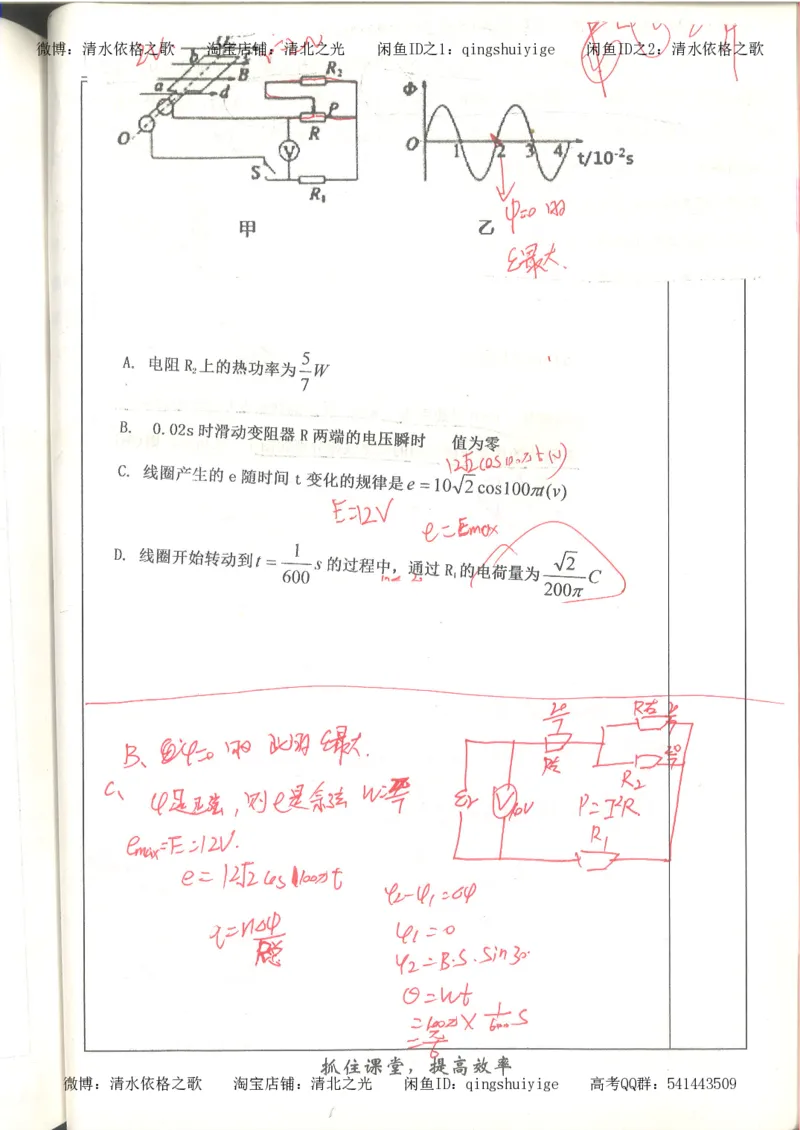 微博：清水依格之歌 淘宝店铺：清北之光 闲鱼ID之1：qingshuiyige 闲鱼ID之2：清水依格之歌
b c
B
a d
O
R₂
P
R
V
S
R₁
甲
Φ
O 1 2 3 4 t/10⁻²s
φ=0时
ε最大.
乙
A. 电阻R₂上的热功率为5/7 W
B. 0.02s时滑动变阻器R两端的电压瞬时 值为零
12√2cos100πt(V)
C. 线圈产生的e随时间t变化的规律是e=10√2cos100πt(v)
E=12V
e=Emax
D. 线圈开始转动到t=1/600 s的过程中，通过R₁的电荷量为√2/200π C
B、当φ=0时 此时ε最大.
C、φ是正弦，则e是余弦
emax=E=12V.
e=12√2cos100πt
q=nΔφ/R总
20/7
R右
20/7
R₂
V 10V
P=I²R.
R₁
φ₂-φ₁=Δφ
φ₁=0
φ₂=B·S·sin30·
θ=ωt
=100π×1/600 S
=π/6
抓住课堂，提高效率
微博：清水依格之歌 淘宝店铺：清北之光 闲鱼ID：qingshuiyige 高考QQ群：541443509